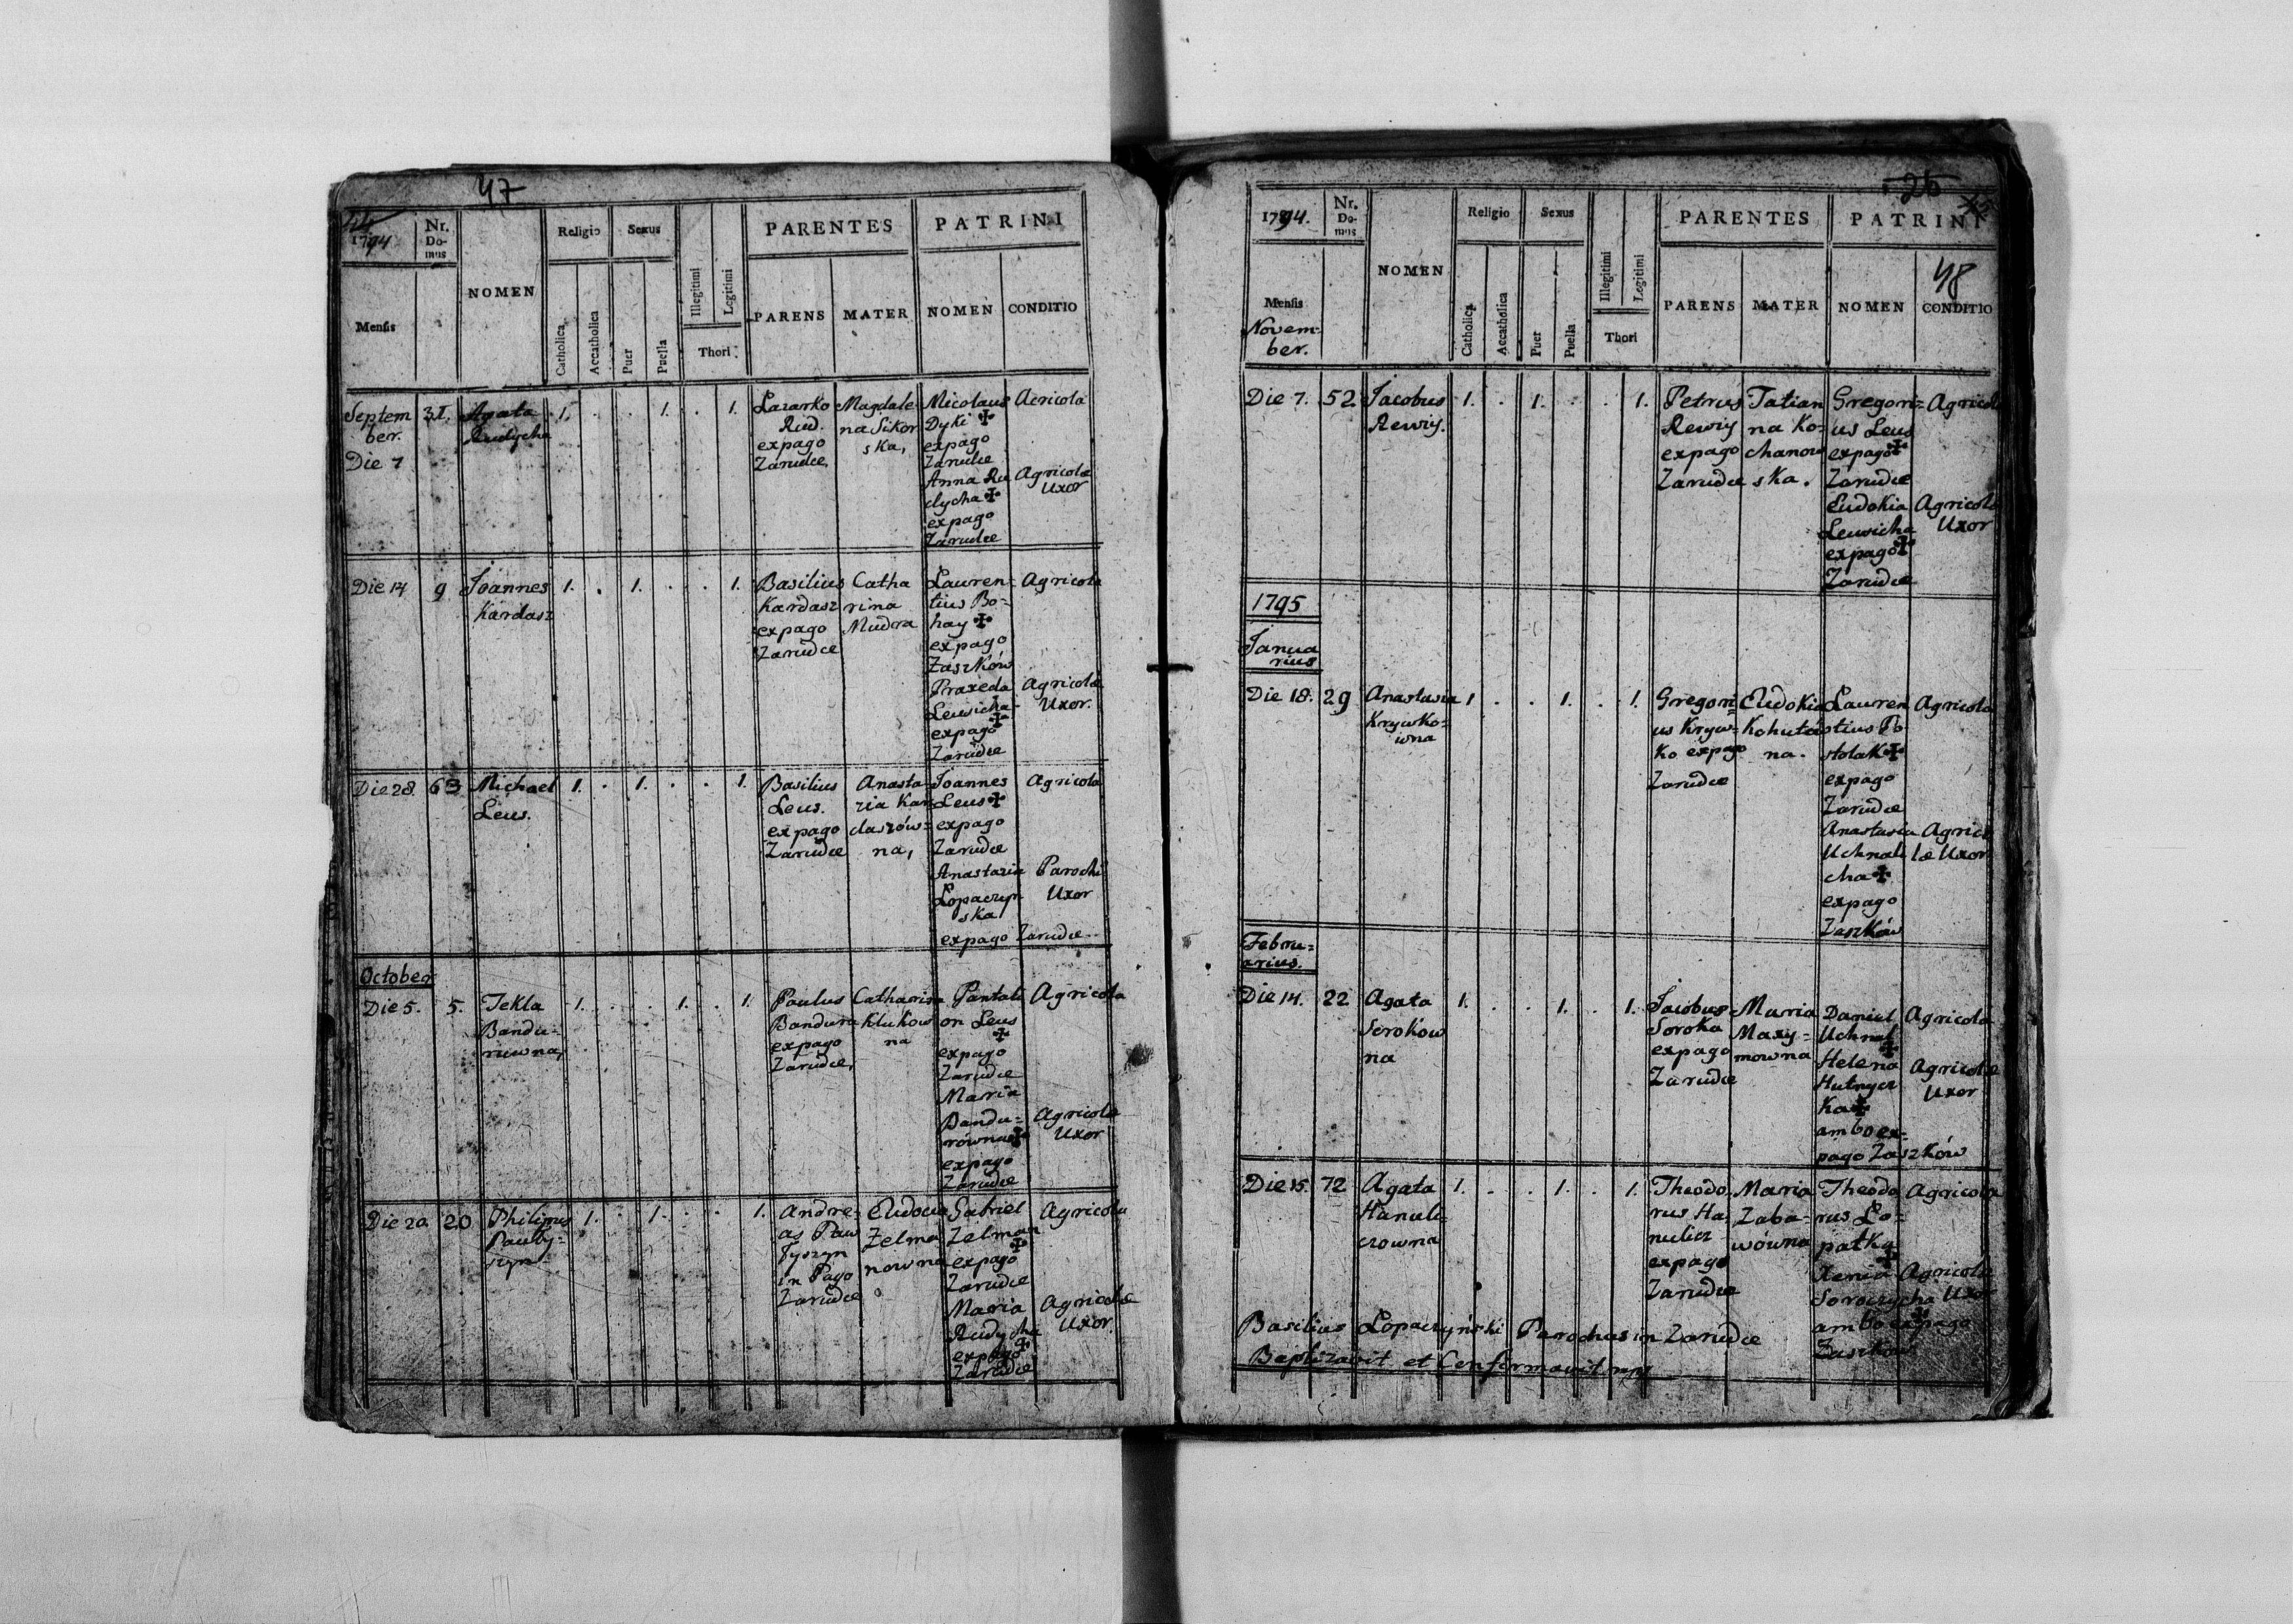 47
44
1794
Nr. Do- mus
NOMEN
Religio
Sexus
Illegitimi
Legitimi
PARENTES
PATRINI
Mensis
Catholica
Accatholica
Puer
Puella
Thori
PARENS
MATER
NOMEN
CONDITIO
Septem
ber.
Die 7
31.
Agata
Rudycha
1. . . 1. . 1.
Lazarko
Rud.
expago
Zarudce,
Magdale
na Sikor
ska,
Nicolaus
Dyki ✠
expago
Zarudce
Anna Ru
dycha ✠
expago
Zarudce
Agricola
Agricolæ
Uxor
Die 14
9
Joannes
Kardasz
1. . 1. . . 1.
Basilius
Kardasz
expago
Zarudce
Catha
rina
Mudra
Lauren=
tius Bo=
hay ✠
expago
Zaszków
Praxeda
Lewicha
✠
expago
Zarudce
Agricola
Agricolæ
Uxor.
Die 28.
63
Michael
Leus.
1. . 1. . . 1.
Basilius
Leus.
expago
Zarudce
Anasta
zia Kar
daszów=
na,
Joannes
Leus ✠
expago
Zarudce
Anastazia
Lopaczyn
ska
expago Zarudce
Agricola
Parochi
Uxor
October
Die 5.
5.
Tekla
Bandu=
rowna,
1. . . 1. . 1.
Paulus
Bandura
expago
Zarudce,
Catharina
Klukow
na
Pantale
on Leus
✠
expago
Zarudce
Maria
Bandu=
równa ✠
expago
Zarudce
Agricola
Agricolæ
Uxor
Die 20
20
Philipus
1. . 1. . . 1.
Andre=
as Paw
in Pago
Zarudce
Eudocia
Zelma
nowna
Gabriel
Zelman
✠
expago
Zarudce
Maria
Rudycha
✠
expago
Zarudce
Agricola
Agricolæ
Uxor.
25
45
48
1794.
Nr. Do- mus
NOMEN
Religio
Sexus
Illegitimi
Legitimi
PARENTES
PATRINI
Mensis
Novem=
ber.
Catholica
Accatholica
Puer
Puella
Thori
PARENS
MATER
NOMEN
CONDITIO
Die 7.
52
Jacobus
Rewiy.
1. . 1. . . 1.
Petrus
Rewiy
expago
Zarudce
Tatian
na Ko=
chanow
ska.
Gregori=
us Leus
expago ✠
Zarudce
Eudokia
Lewicha
expago ✠
Zarudce
Agricola
Agricolæ
Uxor
1795
Janua
rius
Die 18.
29
Anastasia
Krywko=
wna
1 . . 1. . 1.
Gregori=
us Kryw=
ko expago
Zarudce
Eudokia
Kohutó
na.
Lauren
tius Po
stolak ✠
expago
Zarudce
Anastasia
Uchnali
cha ✠
expago
Zaszków
Agricola
Agrico
læ Uxor
Febru=
arius.
Die 14.
22
Agata
Sorokow
na
1. . . 1. . 1.
Jacobus
Soroka
expago
Zarudce
Maria
Maxy=
mowna
Daniel
Uchnal
✠
Helena
Hutnycz
ka ✠
ambo ex=
pago Zaszków
Agricola
Agricolæ
Uxor
Die 15.
72
Agata
Hanuli=
czowna
1. . . 1. . 1.
Theodo
rus Ha=
nulicz
expago
Zarudce
Maria
Zaba=
wówna
Theodo
rus Lo=
patka
✠
Xenia
Soroczycha
✠
ambo expago
Zaszków
Agricola
Agricolæ
Uxor
Basilius Lopaczyński Parochus in Zarudce
Baptizavit et Confirmavit mpr